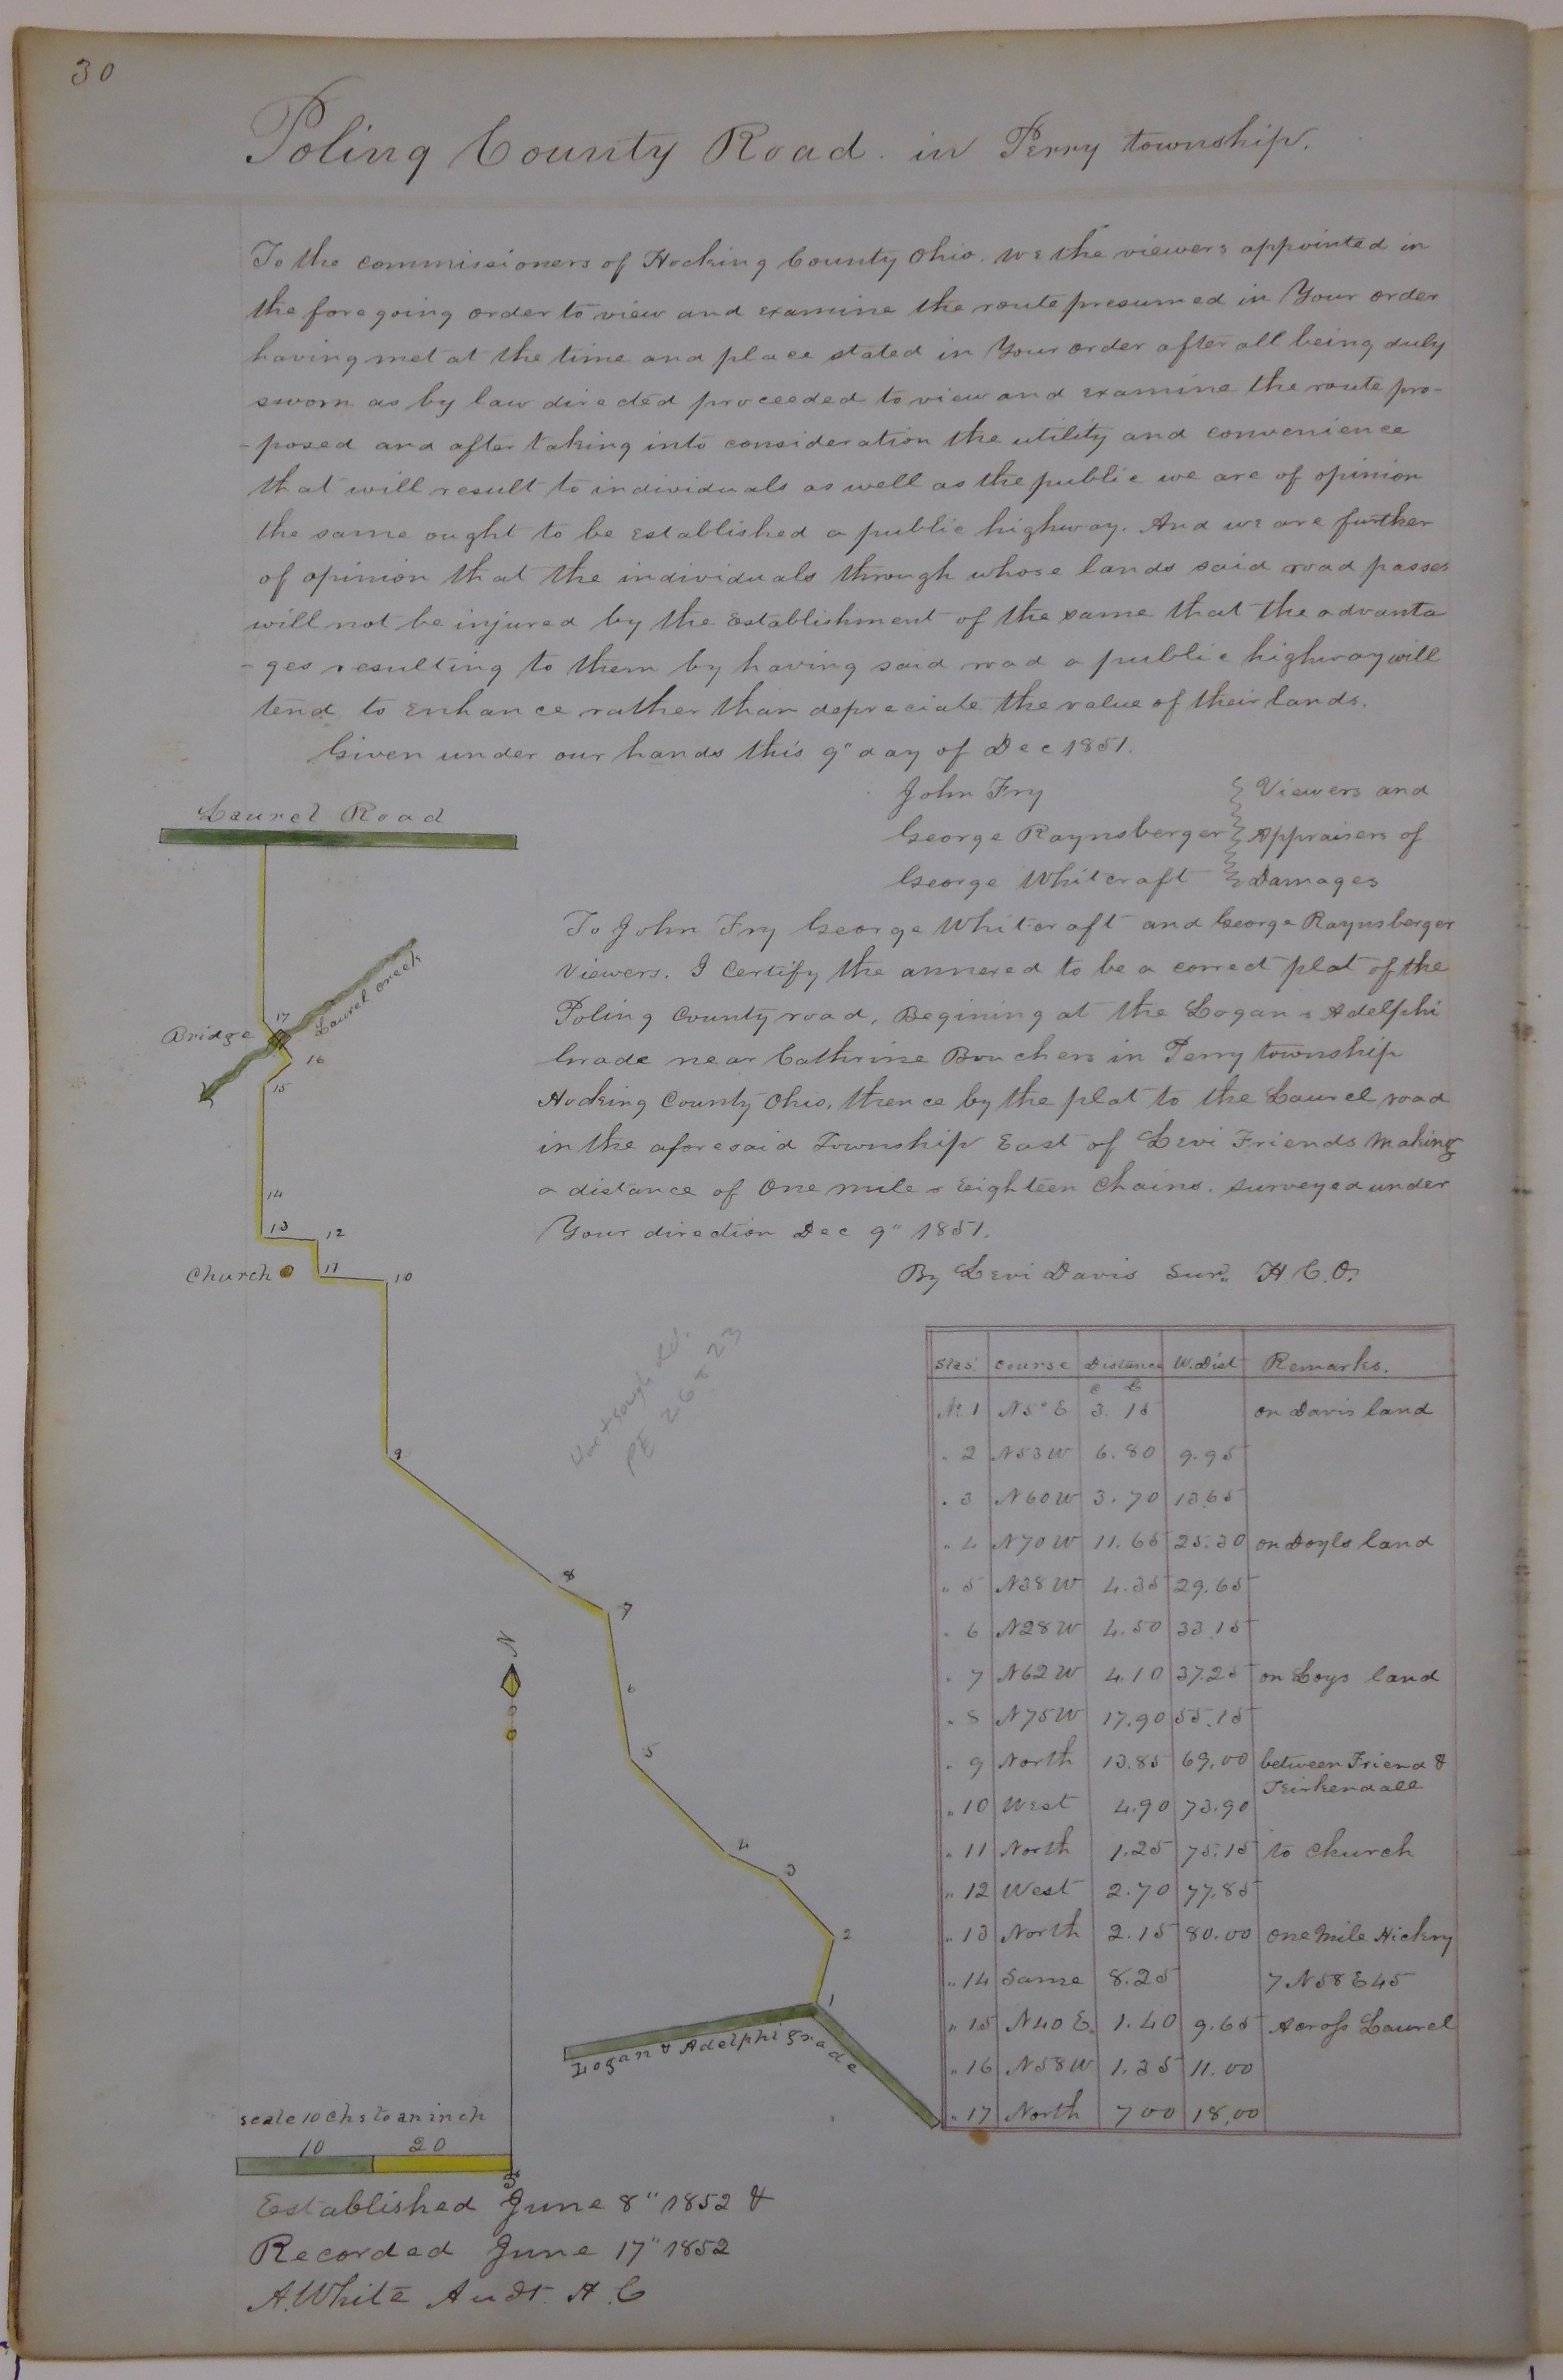 30
Poling County Road in Perry township.
To the commissioners of Hocking County Ohio. We the viewers appointed in
the fore going order to view and examine the route presumed in Your order
having met at the time and place stated in Your order after all being duly
sworn as by law directed proceeded to view and examine the route pro-
-posed and after taking into consideration the utility and convenience
that will result to individuals as well as the public we are of opinion
the same ought to be established a public highway. And we are further
of opinion that the individuals through whose lands said road passes
will not be injured by the establishment of the same that the advanta
-ges resulting to them by having said road a public highway will
tend to enhance rather than depreciate the value of their lands.
Given under our hands this 9" day of Dec 1851.
John Fry } Viewers and
George Raynsberger } Appraisers of
George Whitcraft } Damages
Laurel Road
To John Fry George Whitcraft and George Raynsberger
Viewers. I Certify the annexed to be a correct plat of the
Poling County road, Begining at the Logan & Adelphi
Grade near Cathrine Bouchers in Perry township
Hocking County Ohio, thence by the plat to the Laurel road
in the aforesaid Township East of Levi Friends Making
a distance of One mile & Eighteen Chains. Surveyed under
Your direction Dec 9" 1851.
By Levi Davis Sur. H. C. O.
17
Bridge
Laurel creek
16
15
14
13
12
Church
11
10
9
8
7
6
5
4
3
2
1
N
S
PE 26 + 23
Logan & Adelphi Grade
Stas. Course Distance W. Dist Remarks.
C L
No 1 N5°E 3.15 on Davis land
" 2 N53W 6.80 9.95
" 3 N60W 3.70 13.65
" 4 N70W 11.65 25.30 on Doyls land
" 5 N38W 4.35 29.65
" 6 N28W 4.50 33.15
" 7 N62W 4.10 37.25 on Loys land
" 8 N75W 17.90 55.15
" 9 North 13.85 69.00 between Friend &
Keirkendall
" 10 West 4.90 73.90
" 11 North 1.25 75.15 to Church
" 12 West 2.70 77.85
" 13 North 2.15 80.00 One Mile Hickry
" 14 Same 8.25 7 N58E45
" 15 N40E. 1.40 9.65 Across Laurel
" 16 N58W 1.35 11.00
" 17 North 7 00 18.00
scale 10 chs to an inch
10 20
Established June 8" 1852 &
Recorded June 17" 1852
A. White Audt. H. C